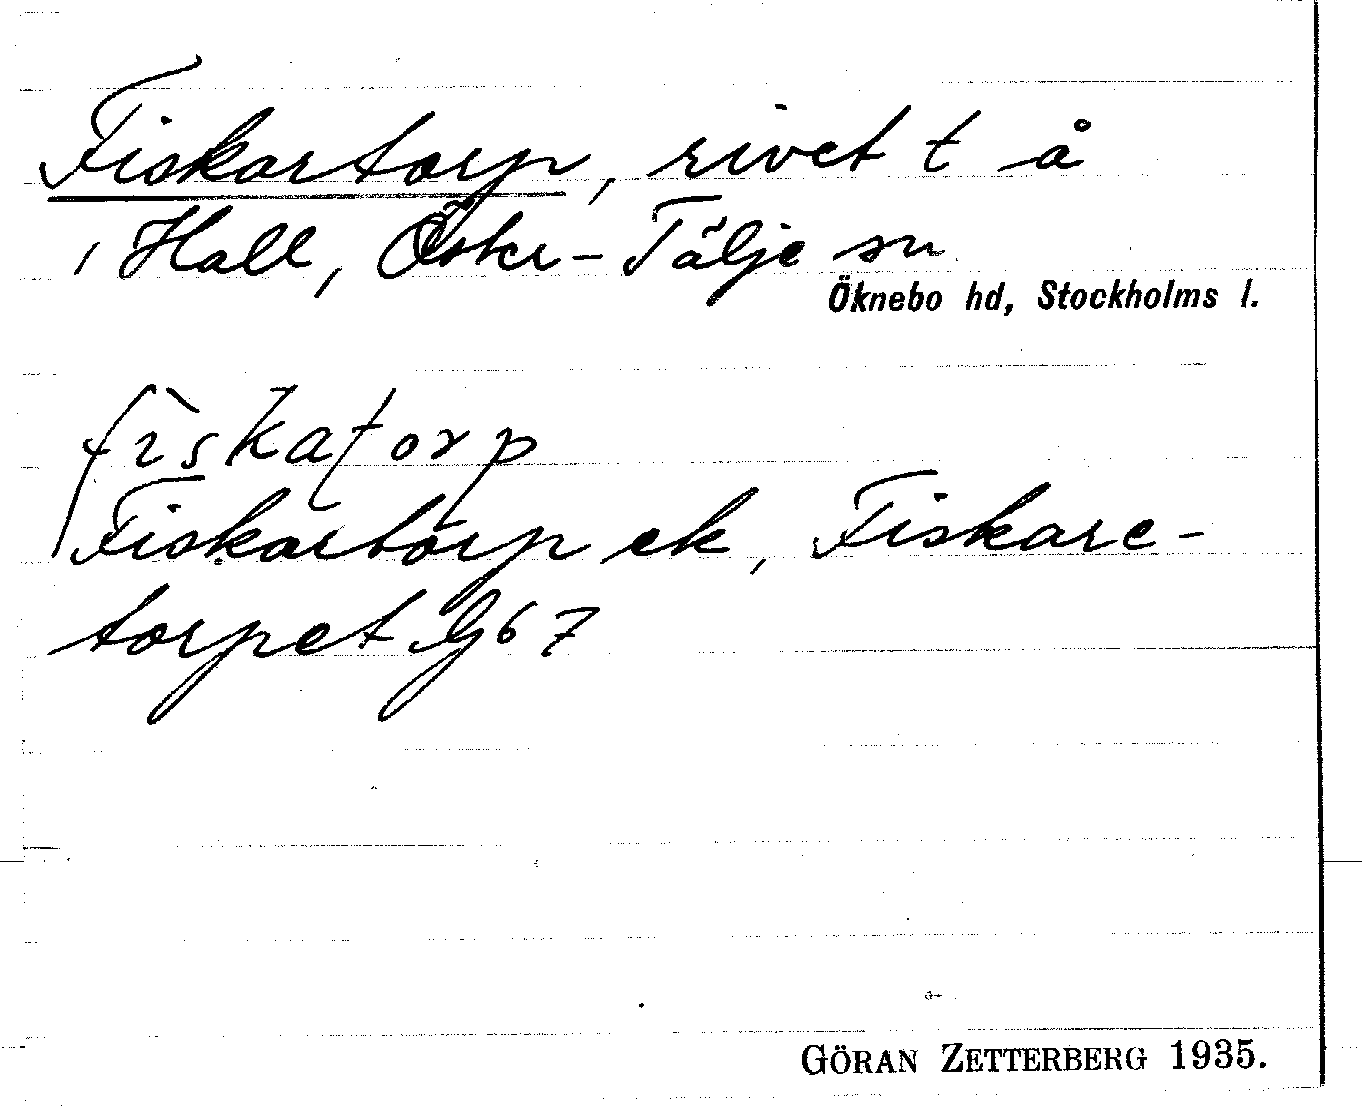 Fiskartorp, rivet t å
, Hall, Öster-Tälje sn
Öknebo hd, Stockholms l.
fìskatorp
Fiskartorp ek, Fiskare-
torpet G67
GÖRAN ZETTERBERG 1935.